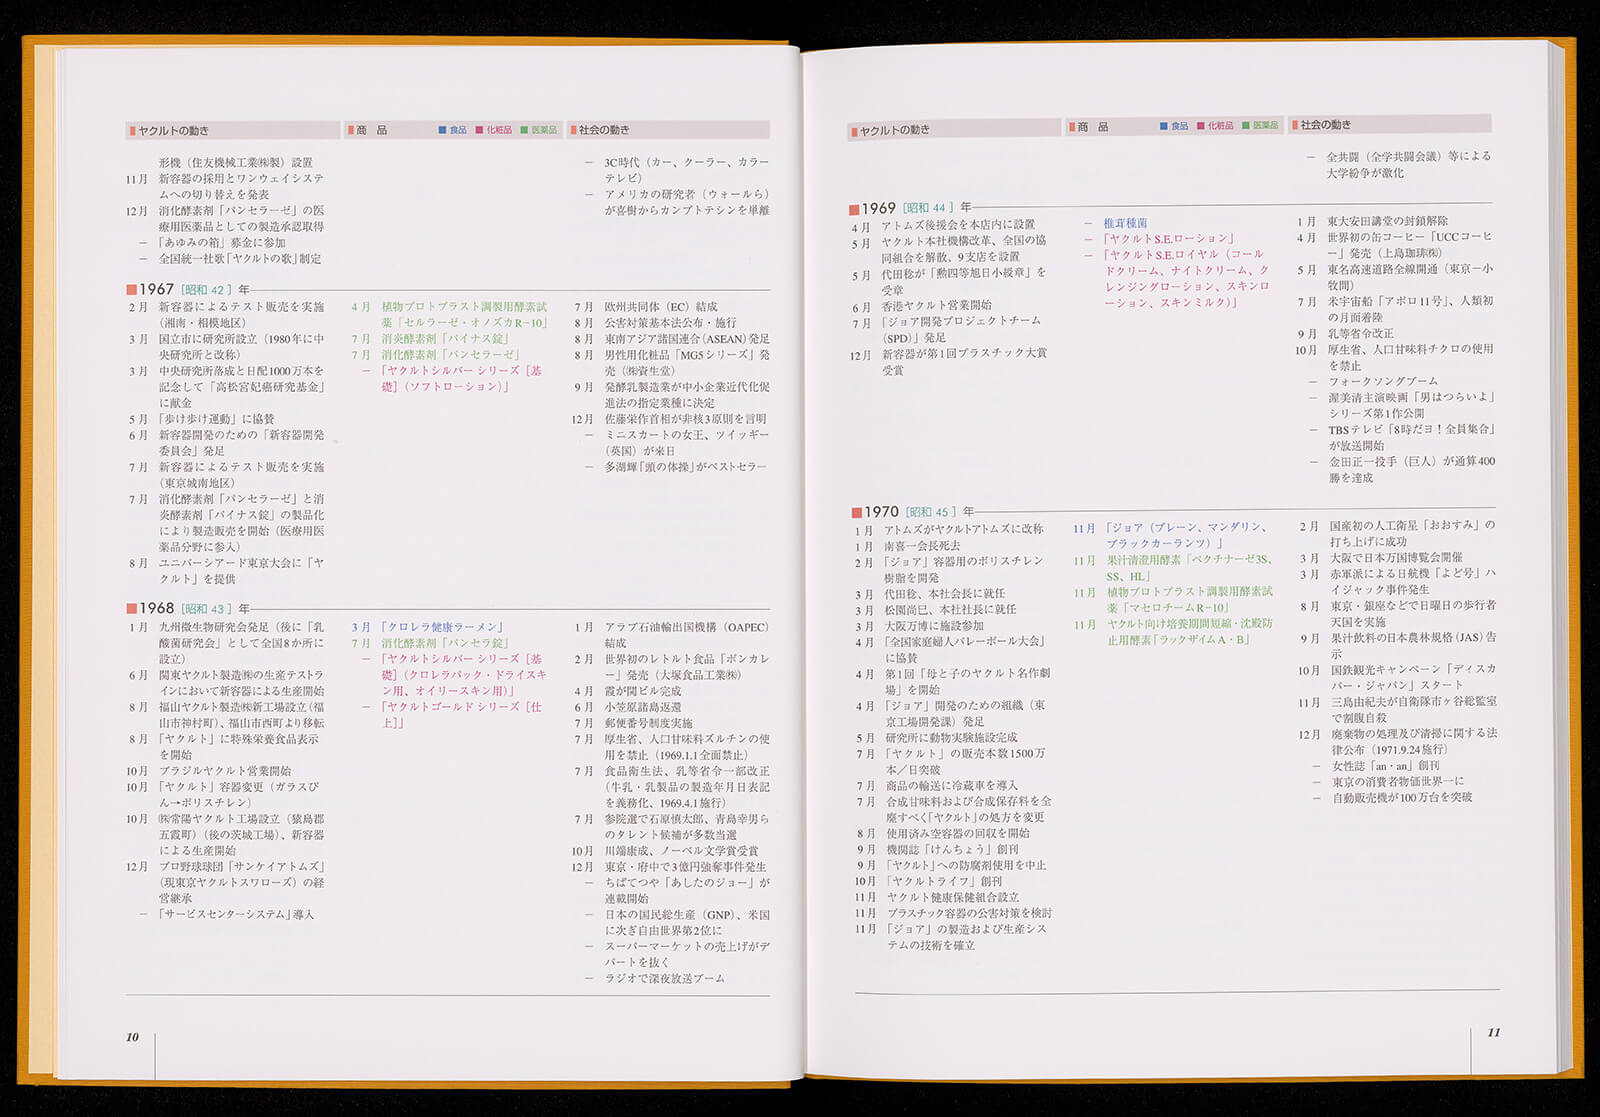 ヤクルトの動き
形機（住友機械工業㈱製）設置
11月 新容器の採用とワンウェイシステ
ムへの切り替えを発表
12月 消化酵素剤「パンセラーゼ」の医
療用医薬品としての製造承認取得
― 「あゆみの箱」募金に参加
― 全国統一社歌「ヤクルトの歌」制定
商 品 ■食品 ■化粧品 ■医薬品
社会の動き
― 3C時代（カー、クーラー、カラー
テレビ）
― アメリカの研究者（ウォールら）
が喜樹からカンプトテシンを単離
1967［昭和 42］年
2月 新容器によるテスト販売を実施
（湘南・相模地区）
3月 国立市に研究所設立（1980年に中
央研究所と改称）
3月 中央研究所落成と日配1000万本を
記念して「高松宮妃癌研究基金」
に献金
5月 「歩け歩け運動」に協賛
6月 新容器開発のための「新容器開発
委員会」発足
7月 新容器によるテスト販売を実施
（東京城南地区）
7月 消化酵素剤「パンセラーゼ」と消
炎酵素剤「パイナス錠」の製品化
により製造販売を開始（医療用医
薬品分野に参入）
8月 ユニバーシアード東京大会に「ヤ
クルト」を提供
4月 植物プロトプラスト調製用酵素試
薬「セルラーゼ・オノズカR-10」
7月 消炎酵素剤「パイナス錠」
7月 消化酵素剤「パンセラーゼ」
― 「ヤクルトシルバー シリーズ［基
礎］（ソフトローション）」
7月 欧州共同体（EC）結成
8月 公害対策基本法公布・施行
8月 東南アジア諸国連合（ASEAN）発足
8月 男性用化粧品「MG5シリーズ」発
売（㈱資生堂）
9月 発酵乳製造業が中小企業近代化促
進法の指定業種に決定
12月 佐藤栄作首相が非核3原則を言明
― ミニスカートの女王、ツイッギー
（英国）が来日
― 多湖輝「頭の体操」がベストセラー
1968［昭和 43］年
1月 九州微生物研究会発足（後に「乳
酸菌研究会」として全国8か所に
設立）
6月 関東ヤクルト製造㈱の生産テストラ
インにおいて新容器による生産開始
8月 福山ヤクルト製造㈱新工場設立（福
山市神村町）、福山市西町より移転
8月 「ヤクルト」に特殊栄養食品表示
を開始
10月 ブラジルヤクルト営業開始
10月 「ヤクルト」容器変更（ガラスび
ん→ポリスチレン）
10月 ㈱常陽ヤクルト工場設立（猿島郡
五霞町）（後の茨城工場）、新容器
による生産開始
12月 プロ野球球団「サンケイアトムズ」
（現東京ヤクルトスワローズ）の経
営継承
― 「サービスセンターシステム」導入
3月 「クロレラ健康ラーメン」
7月 消化酵素剤「パンセラ錠」
― 「ヤクルトシルバー シリーズ［基
礎］（クロレラパック・ドライスキ
ン用、オイリースキン用）」
― 「ヤクルトゴールド シリーズ［仕
上］」
1月 アラブ石油輸出国機構（OAPEC）
結成
2月 世界初のレトルト食品「ボンカレ
ー」発売（大塚食品工業㈱）
4月 霞が関ビル完成
6月 小笠原諸島返還
7月 郵便番号制度実施
7月 厚生省、人口甘味料ズルチンの使
用を禁止（1969.1.1全面禁止）
7月 食品衛生法、乳等省令一部改正
（牛乳・乳製品の製造年月日表記
を義務化、1969.4.1施行）
7月 参院選で石原慎太郎、青島幸男ら
のタレント候補が多数当選
10月 川端康成、ノーベル文学賞受賞
12月 東京・府中で3億円強奪事件発生
― ちばてつや「あしたのジョー」が
連載開始
― 日本の国民総生産（GNP）、米国
に次ぎ自由世界第2位に
― スーパーマーケットの売上げがデ
パートを抜く
― ラジオで深夜放送ブーム
10
ヤクルトの動き
商 品 ■食品 ■化粧品 ■医薬品
社会の動き
― 全共闘（全学共闘会議）等による
大学紛争が激化
1969［昭和 44］年
4月 アトムズ後援会を本店内に設置
5月 ヤクルト本社機構改革、全国の協
同組合を解散、9支店を設置
5月 代田稔が「勲四等旭日小綬章」を
受章
6月 香港ヤクルト営業開始
7月 「ジョア開発プロジェクトチーム
（SPD）」発足
12月 新容器が第1回プラスチック大賞
受賞
― 椎茸種菌
― 「ヤクルトS.E.ローション」
― 「ヤクルトS.E.ロイヤル（コール
ドクリーム、ナイトクリーム、ク
レンジングローション、スキンロ
ーション、スキンミルク）」
1月 東大安田講堂の封鎖解除
4月 世界初の缶コーヒー「UCCコーヒ
ー」発売（上島珈琲㈱）
5月 東名高速道路全線開通（東京－小
牧間）
7月 米宇宙船「アポロ11号」、人類初
の月面着陸
9月 乳等省令改正
10月 厚生省、人口甘味料チクロの使用
を禁止
― フォークソングブーム
― 渥美清主演映画「男はつらいよ」
シリーズ第1作公開
― TBSテレビ「8時だヨ！全員集合」
が放送開始
― 金田正一投手（巨人）が通算400
勝を達成
1970［昭和 45］年
1月 アトムズがヤクルトアトムズに改称
1月 南喜一会長死去
2月 「ジョア」容器用のポリスチレン
樹脂を開発
3月 代田稔、本社会長に就任
3月 松園尚巳、本社社長に就任
3月 大阪万博に施設参加
4月 「全国家庭婦人バレーボール大会」
に協賛
4月 第1回「母と子のヤクルト名作劇
場」を開始
4月 「ジョア」開発のための組織（東
京工場開発課）発足
5月 研究所に動物実験施設完成
7月 「ヤクルト」の販売本数1500万
本／日突破
7月 商品の輸送に冷蔵車を導入
7月 合成甘味料および合成保存料を全
廃すべく「ヤクルト」の処方を変更
8月 使用済み空容器の回収を開始
9月 機関誌「けんちょう」創刊
9月 「ヤクルト」への防腐剤使用を中止
10月 「ヤクルトライフ」創刊
11月 ヤクルト健康保健組合設立
11月 プラスチック容器の公害対策を検討
11月 「ジョア」の製造および生産シス
テムの技術を確立
11月 「ジョア（プレーン、マンダリン、
ブラックカーランツ）」
11月 果汁清澄用酵素「ペクチナーゼ3S、
SS、HL」
11月 植物プロトプラスト調製用酵素試
薬「マセロチームR-10」
11月 ヤクルト向け培養期間短縮・沈殿防
止用酵素「ラックザイムA・B」
2月 国産初の人工衛星「おおすみ」の
打ち上げに成功
3月 大阪で日本万国博覧会開催
3月 赤軍派による日航機「よど号」ハ
イジャック事件発生
8月 東京・銀座などで日曜日の歩行者
天国を実施
9月 果汁飲料の日本農林規格（JAS）告
示
10月 国鉄観光キャンペーン「ディスカ
バー・ジャパン」スタート
11月 三島由紀夫が自衛隊市ヶ谷総監室
で割腹自殺
12月 廃棄物の処理及び清掃に関する法
律公布（1971.9.24施行）
― 女性誌「an・an」創刊
― 東京の消費者物価世界一に
― 自動販売機が100万台を突破
11